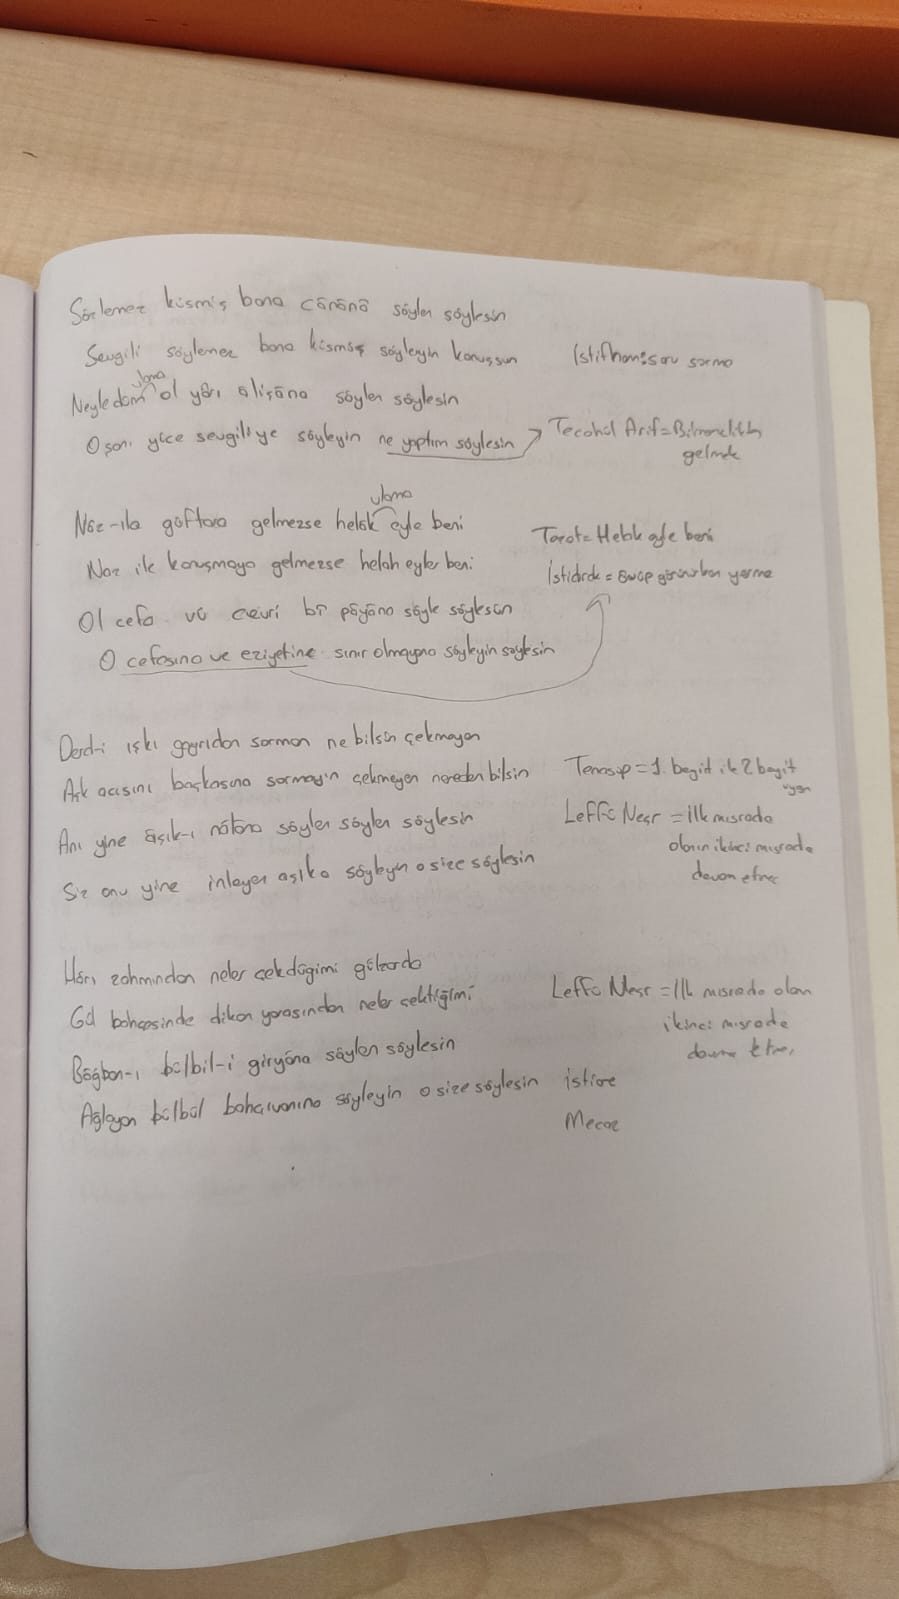 Söylemez küsmiş bana cânânâ söylen söylesin
Sevgili söylemez bana küsmüş söyleyin konuşsun
İstifham: soru sorma
ulama
Neyledüm ol yârı âlîşâna söylen söylesin
O şanı yüce sevgiliye söyleyin ne yaptım söylesin
Tecahül Arif = Bilmemezlikten
gelmek
ulama
Nâz-ıla güftara gelmezse helâk eyle beni
Naz ile konuşmaya gelmezse helak eyler beni
Tezat = Helak eyle beni
İstidrak = övüp görünürken yerme
Ol cefa vü cevri bî pâyâna söyle söylesün
O cefasına ve eziyetine sınır olmayana söyleyin söylesin
Derd-i ışkı gayrıdan sorman ne bilsün çekmeyen
Aşk acısını başkasına sormayın çekmeyen nereden bilsin
Tenasüp = 1. beyit ile 2 beyit
uyan
Anı yine âşık-ı nâlâna söylen söylen söylesin
Siz onu yine inleyen aşıka söyleyin o size söylesin
Leffü Neşr = ilk mısrada
olanın ikinci mısrada
devam etmesi
Hârı zahmından neler çekdügimi gülzarda
Gül bahçesinde diken yarasından neler çektiğimi
Leffü Neşr = İlk mısrada olan
ikinci mısrada
devam etme,
Bâğban-ı bülbil-i giryâna söylen söylesin
Ağlayan bülbül bahçıvanına söyleyin o size söylesin
istiare
Mecaz